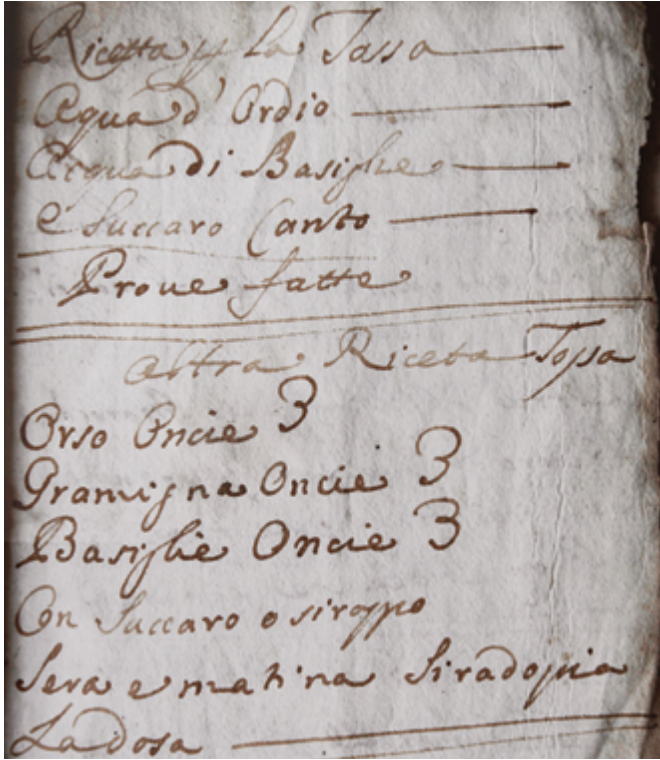 Ricetta p la Tassa
Aqua d'Ordio
Acqua di Basiglie
e Succaro Canto
Proue fatte
altra Riceta Tossa
Orso Oncie 3
Gramigna Oncie 3
Basiglie Oncie 3
Con Succaro o siroppo
Sera e matina Si radopia
La dosa